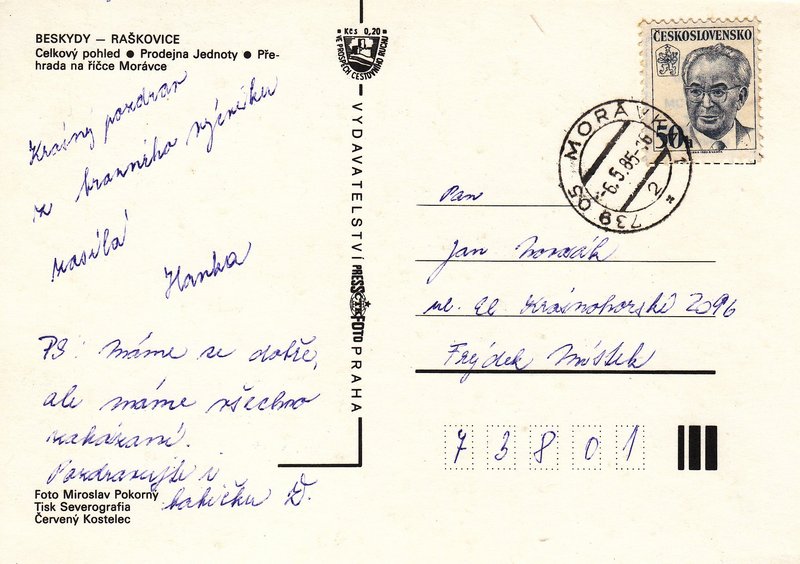 BESKYDY — RAŠKOVICE
Celkový pohled ● Prodejna Jednoty ● Pře-
hrada na říčce Morávce
Krásný pozdrav
z branného výcviku
zasílá
Hanka
PS: Máme se dobře,
ale máme všechno
zakázané.
Pozdravujte i
babičku D.
Foto Miroslav Pokorný
Tisk Severografia
Červený Kostelec
Kčs 0,20
VE PROSPĚCH CESTOVNÍHO RUCHU
VYDAVATELSTVÍ PRESSFOTO PRAHA
ČTK
ČESKOSLOVENSKO
50h
739 05 MORÁVKA 2
-6.5.85-16
Pan
Jan Novák
ul. El. Krásnohorské 2096
Frýdek Místek
73801